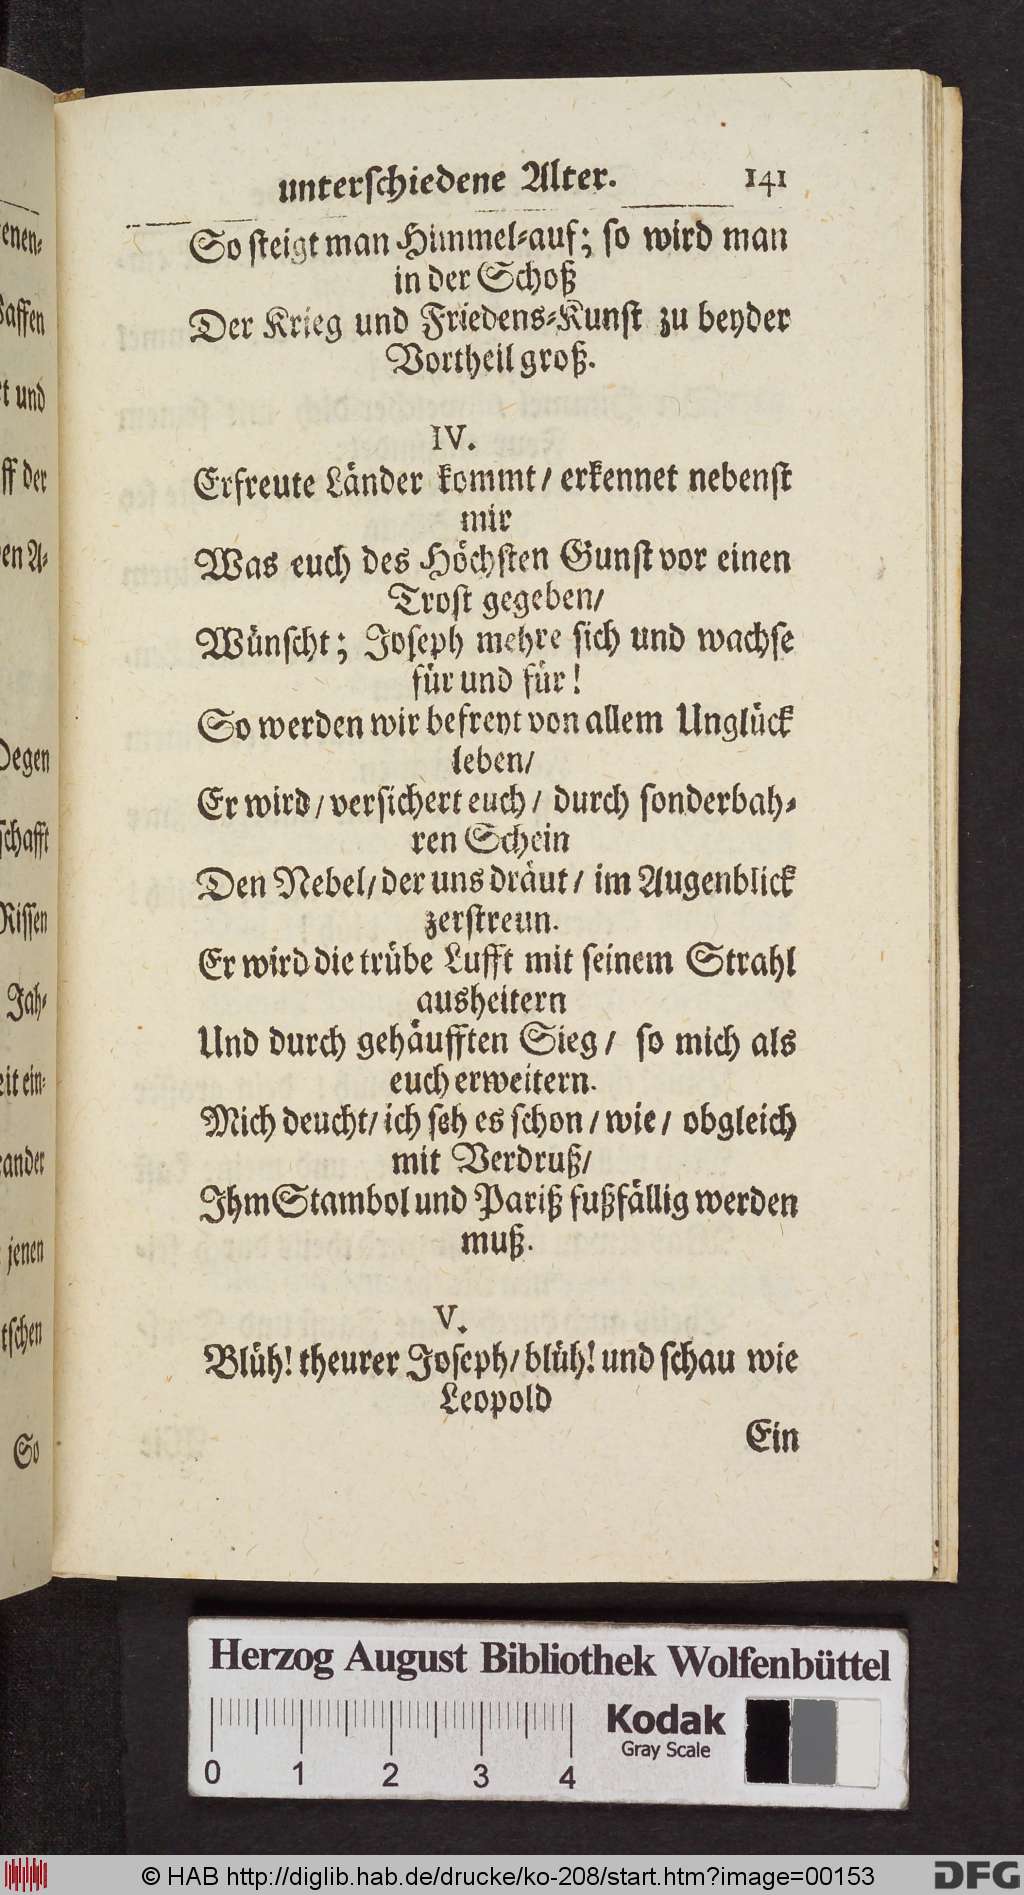 unterschiedene Alter. 141
So steigt man Himmel-auf; so wird man
in der Schoß
Der Krieg und Friedens-Kunst zu beyder
Vortheil groß.
IV.
Erfreute Länder kommt/ erkennet nebenst
mir
Was euch des Höchsten Gunst vor einen
Trost gegeben/
Wünscht; Joseph mehre sich und wachse
für und für!
So werden wir befreyt von allem Unglück
leben/
Er wird/ versichert euch/ durch sonderbah-
ren Schein
Den Nebel/ der uns dräut/ im Augenblick
zerstreun.
Er wird die trübe Lufft mit seinem Strahl
ausheitern
Und durch gehäufften Sieg/ so mich als
euch erweitern.
Mich deucht/ ich seh es schon/ wie/ obgleich
mit Verdruß/
Ihm Stambol und Pariß fußfällig werden
muß.
V.
Blüh! theurer Joseph/ blüh! und schau wie
Leopold
Ein
enen-
affen
t und
ff der
en A-
Degen
schafft
Rissen
Jah-
eit ein-
ander
jenen
tschen
So
Herzog August Bibliothek Wolfenbüttel
Kodak
Gray Scale
0 1 2 3 4
© HAB http://diglib.hab.de/drucke/ko-208/start.htm?image=00153
DFG